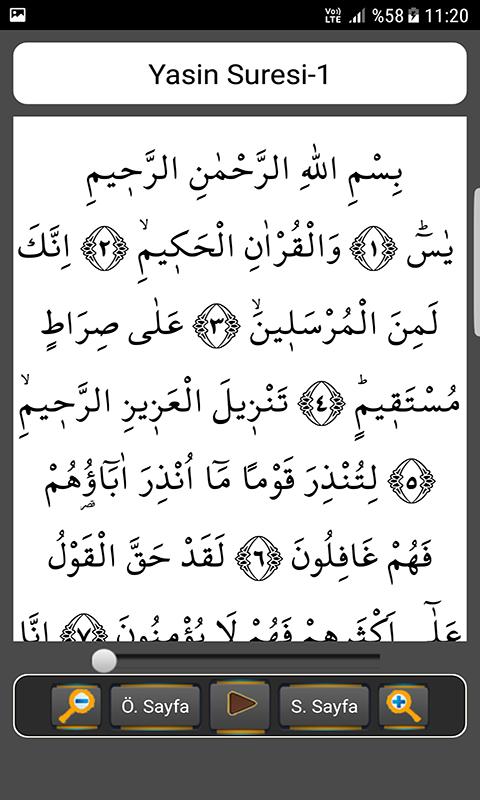 Vo)) LTE %58 11:20
Yasin Suresi-1
بِسْمِ اللهِ الرَّحْمٰنِ الرَّحٖيمِ
يٰسٓ ﴿١﴾ وَالْقُرْاٰنِ الْحَكٖيمِۙ ﴿٢﴾ اِنَّكَ
لَمِنَ الْمُرْسَلٖينَۙ ﴿٣﴾ عَلٰى صِرَاطٍ
مُسْتَقٖيمٍؕ ﴿٤﴾ تَنْزٖيلَ الْعَزٖيزِ الرَّحٖيمِۙ
﴿٥﴾ لِتُنْذِرَ قَوْمًا مَٓا اُنْذِرَ اٰبَٓاؤُ۬هُمْ
فَهُمْ غَافِلُونَ ﴿٦﴾ لَقَدْ حَقَّ الْقَوْلُ
عَلٰٓى اَكْثَرِهِمْ فَهُمْ لَا يُؤْمِنُونَ ﴿٧﴾ اِنَّا
Ö. Sayfa S. Sayfa